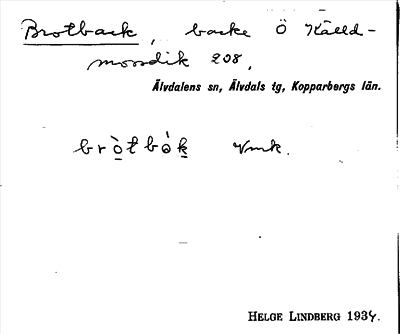 Brotback, backe Ö Källd-
mossdik 208,
Älvdalens sn, Älvdals tg, Kopparbergs län.
bròtbòk Vmk.
HELGE LINDBERG 1934.